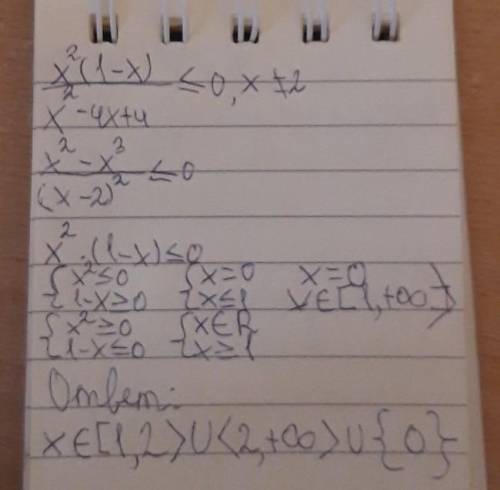 x²(1-x) / x²-4x+4 ≤0, x≠2
x²-x³ / (x-2)² ≤0
x²·(1-x)≤0
{x²≤0 {x=0 x=0
{1-x≥0 {x≤1 x∈[1,+∞>
{x²≥0 {x∈R
{1-x≤0 {x≥1
Ответ:
x∈[1,2>U<2,+∞>U{0}